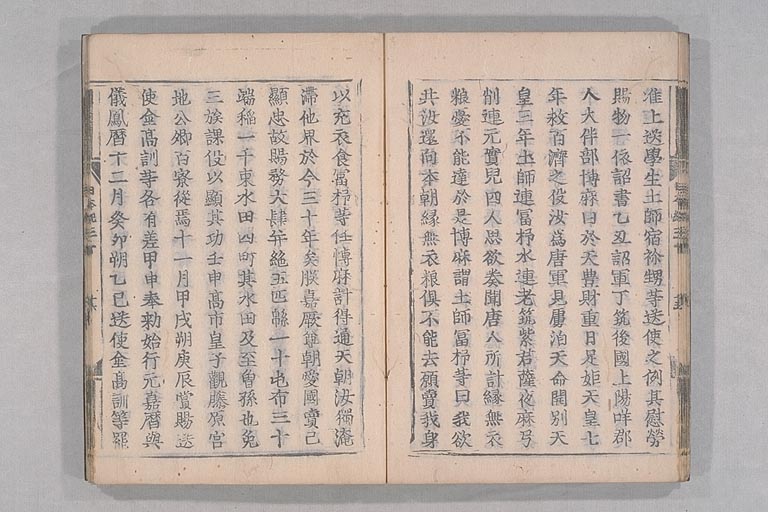 准上送學生土師宿祢甥等送使之例其慰勞
賜物一依詔書乙丑詔軍丁筑後國上陽咩郡
人大伴部博麻曰於天豊財重日足姫天皇七
年救百濟之役汝爲唐軍見虜洎天命開別天
皇三年土師連冨杼氷連老筑紫君薩夜麻弓
削連元寶兒四人思欲奏聞唐人所計縁無衣
粮憂不能達於是博麻謂土師冨杼等曰我欲
共汝還向本朝縁無衣粮俱不能去願賣我身
以充衣食冨杼等任博麻計得通天朝汝獨淹
滯他界於今三十年矣朕嘉厥尊朝愛國賣己
顯忠故賜務大肆并絁五匹緜一十屯布三十
端稲一千束水田四町其水田及至曽孫也免
三族課役以顯其功壬申髙市皇子觀藤原宮
地公卿百寮從焉十一月甲戌朔庚辰賞賜送
使金髙訓等各有差甲申奉勅始行元嘉曆與
儀鳳曆十二月癸卯朔乙巳送使金髙訓等罷